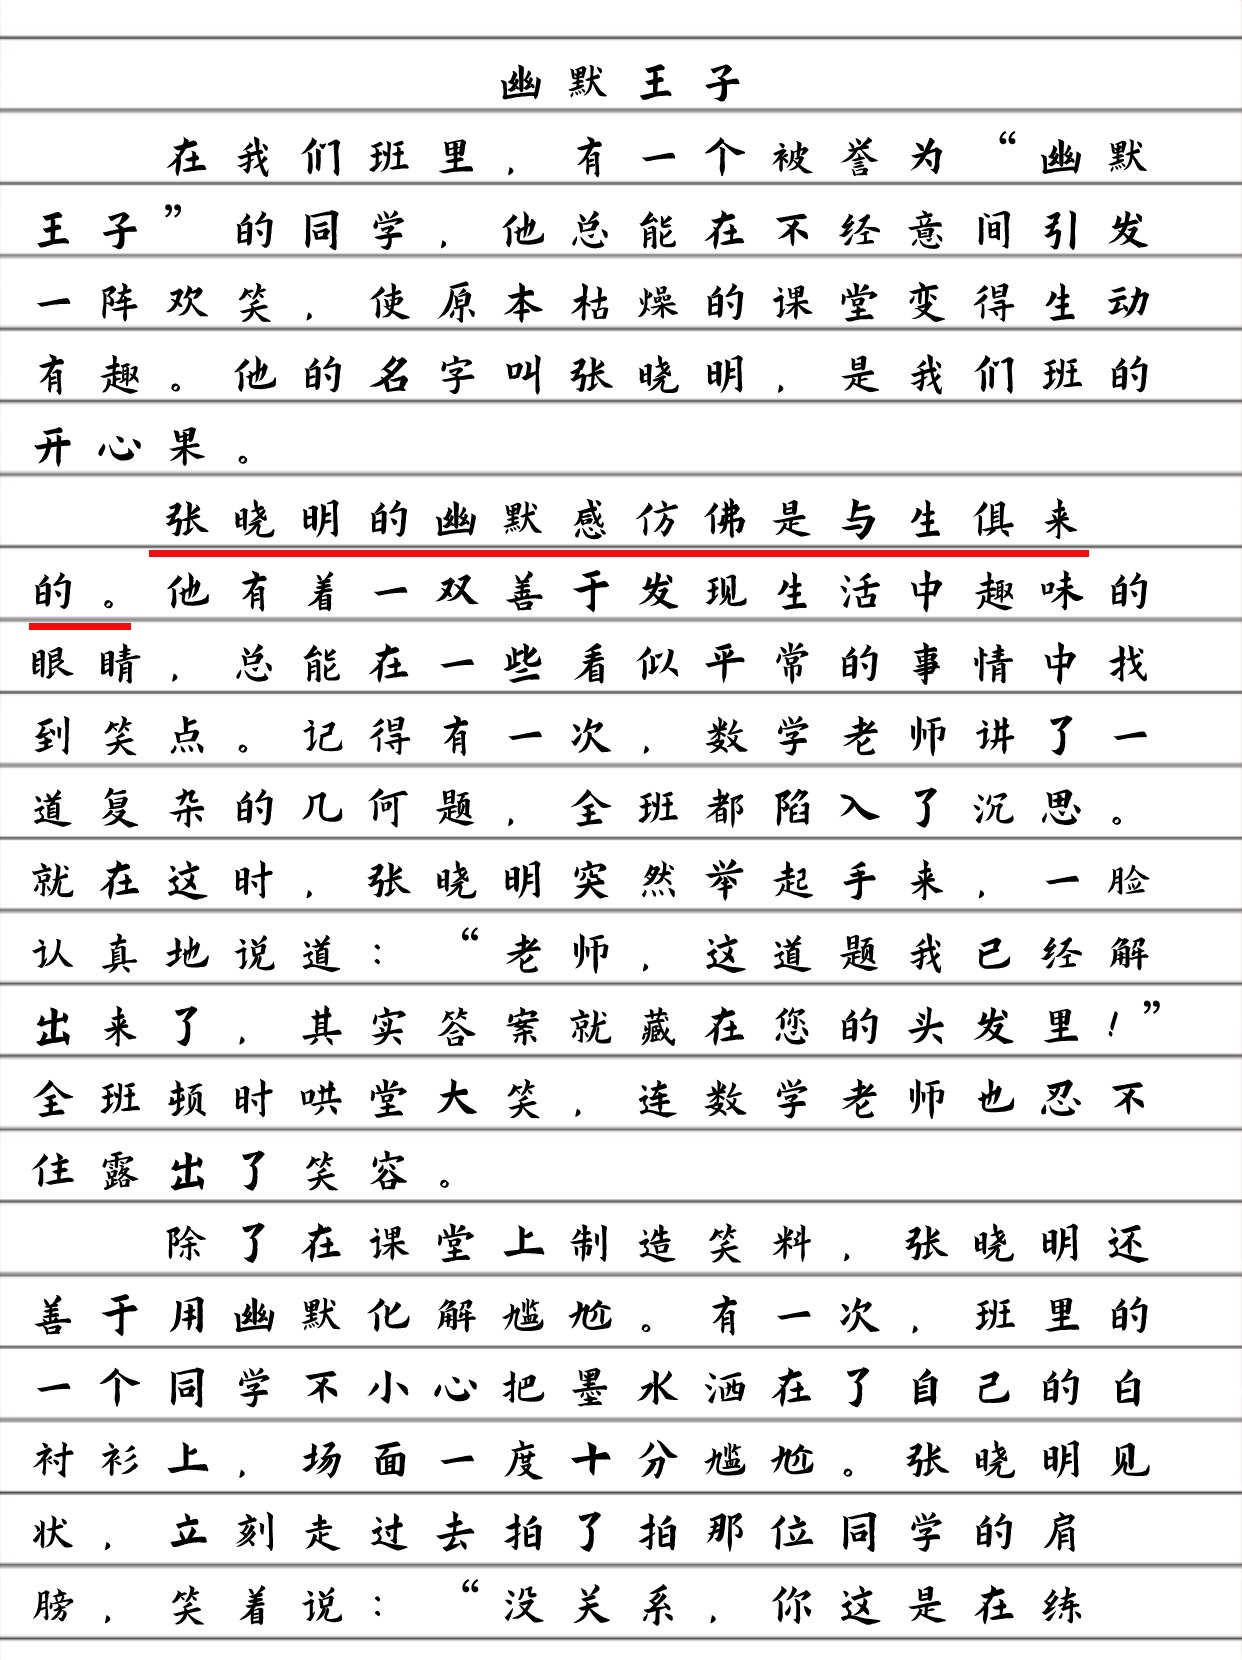 幽默王子
在我们班里，有一个被誉为“幽默
王子”的同学，他总能在不经意间引发
一阵欢笑，使原本枯燥的课堂变得生动
有趣。他的名字叫张晓明，是我们班的
开心果。
张晓明的幽默感仿佛是与生俱来
的。他有着一双善于发现生活中趣味的
眼睛，总能在一些看似平常的事情中找
到笑点。记得有一次，数学老师讲了一
道复杂的几何题，全班都陷入了沉思。
就在这时，张晓明突然举起手来，一脸
认真地说道：“老师，这道题我已经解
出来了，其实答案就藏在您的头发里！”
全班顿时哄堂大笑，连数学老师也忍不
住露出了笑容。
除了在课堂上制造笑料，张晓明还
善于用幽默化解尴尬。有一次，班里的
一个同学不小心把墨水洒在了自己的白
衬衫上，场面一度十分尴尬。张晓明见
状，立刻走过去拍了拍那位同学的肩
膀，笑着说：“没关系，你这是在练